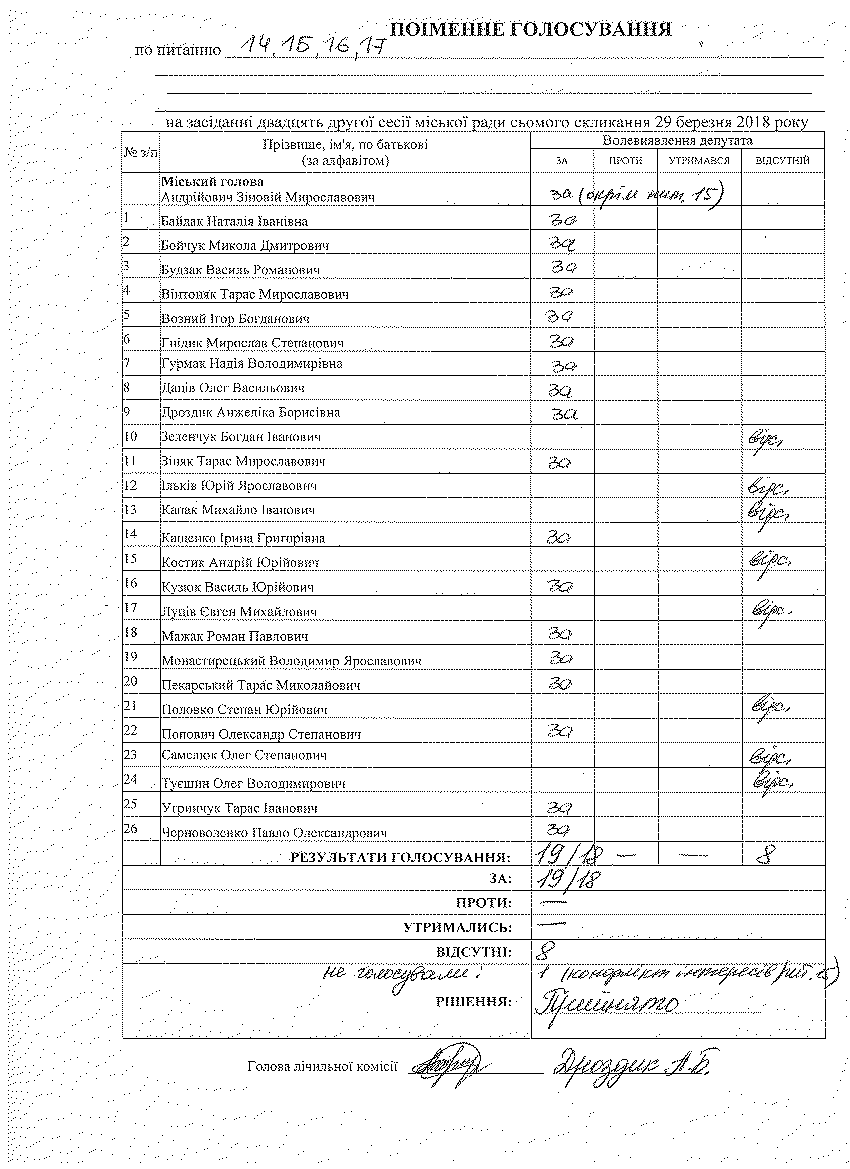 ПОІМЕННЕ ГОЛОСУВАННЯ
по питанню 14, 15, 16, 17
на засіданні двадцять другої сесії міської ради сьомого скликання 29 березня 2018 року
№ з/п Прізвище, ім'я, по батькові (за алфавітом) Волевиявлення депутата
ЗА ПРОТИ УТРИМАВСЯ ВІДСУТНІЙ
Міський голова
Андрійович Зіновій Мирославович за (окрім пит. 15)
1 Байдак Наталія Іванівна за
2 Бойчук Микола Дмитрович за
3 Будзак Василь Романович за
4 Вінтоняк Тарас Мирославович за
5 Возний Ігор Богданович за
6 Гнідик Мирослав Степанович за
7 Гурмак Надія Володимирівна за
8 Даців Олег Васильович за
9 Дроздик Анжеліка Борисівна за
10 Зеленчук Богдан Іванович відс.
11 Зіняк Тарас Мирославович за
12 Ільків Юрій Ярославович відс.
13 Капак Михайло Іванович відс.
14 Кащенко Ірина Григорівна за
15 Костик Андрій Юрійович відс.
16 Кузюк Василь Юрійович за
17 Луців Євген Михайлович відс.
18 Мажак Роман Павлович за
19 Монастирецький Володимир Ярославович за
20 Пекарський Тарас Миколайович за
21 Половко Степан Юрійович відс.
22 Попович Олександр Степанович за
23 Самелюк Олег Степанович відс.
24 Туєшин Олег Володимирович відс.
25 Угринчук Тарас Іванович за
26 Черноволенко Павло Олександрович за
РЕЗУЛЬТАТИ ГОЛОСУВАННЯ: 19/18 — — 8
ЗА: 19/18
ПРОТИ: —
УТРИМАЛИСЬ: —
ВІДСУТНІ: 8
не голосували: 1 (конфлікт інтересів пит. 15)
РІШЕННЯ: Прийнято
Голова лічильної комісії Дроздик А.Б.